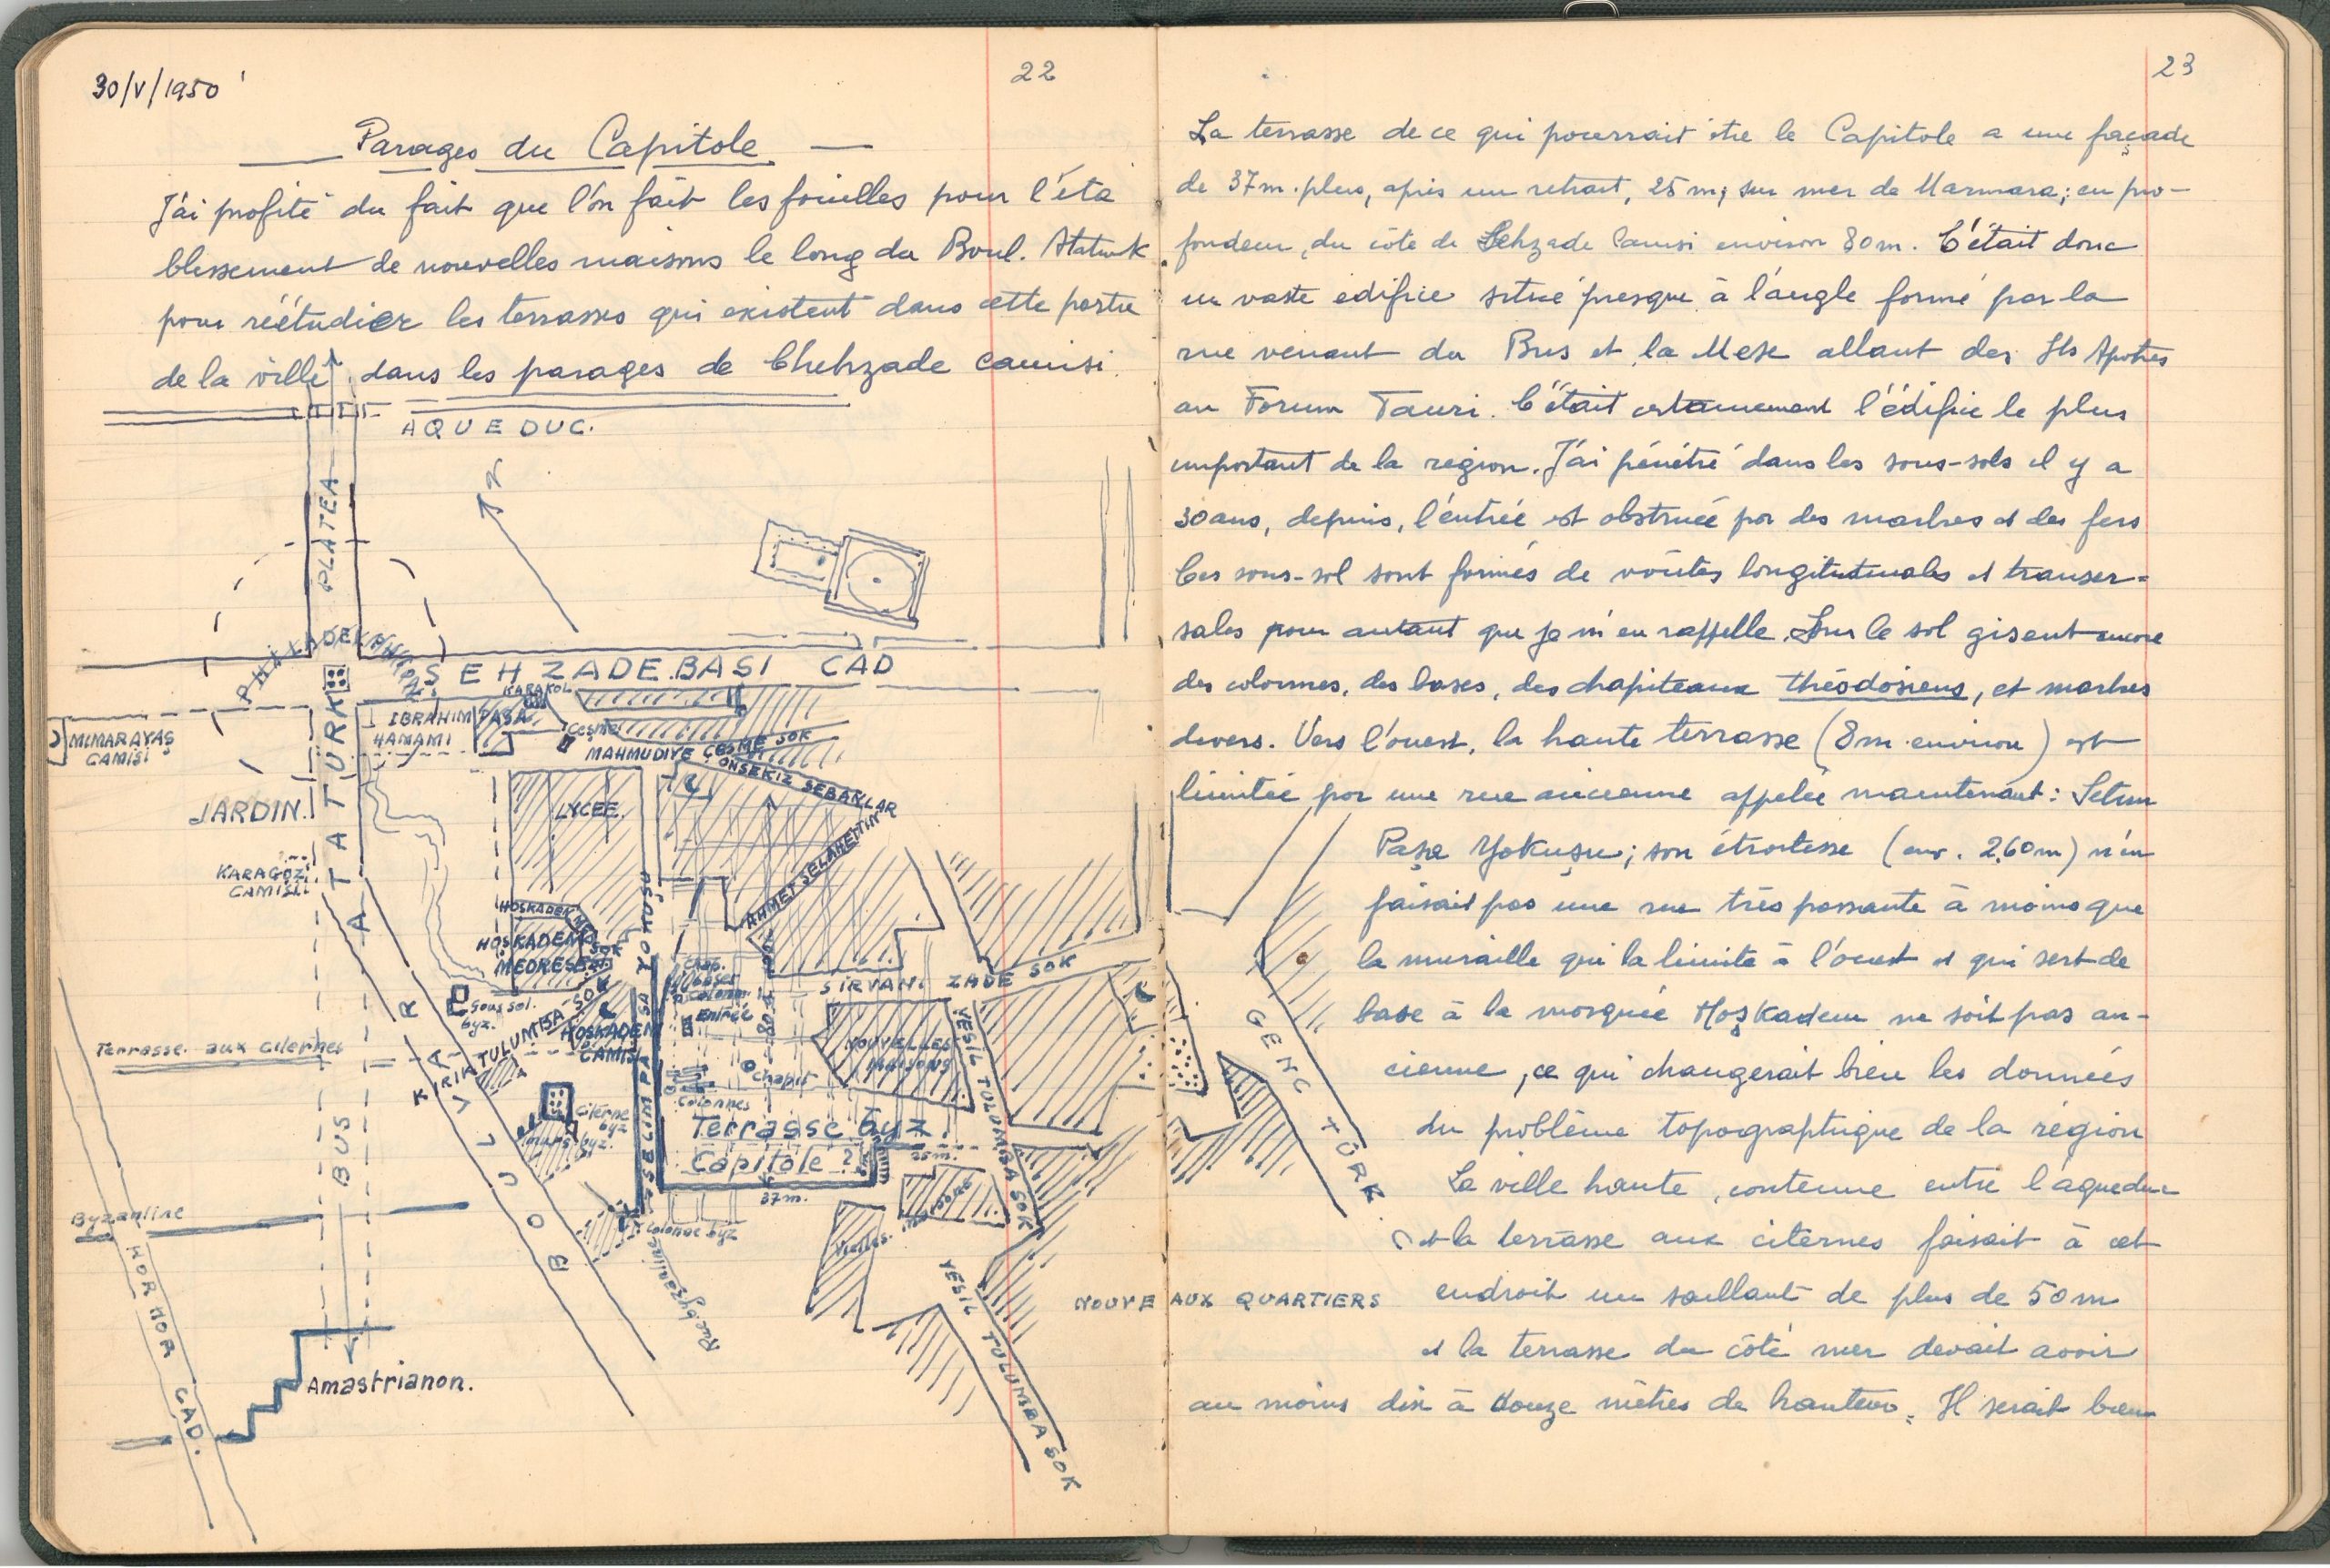 30/V/1950
22
Parages du Capitole
J'ai profité du fait que l'on fait les fouilles pour l'éta
blessement de nouvelles maisons le long du Boul. Ataturk
pour réétudier les terrasses qui existent dans cette partie
de la ville dans les parages de Chehzade camisi.
AQUEDUC.
N
PLATEA
PHILADELPHION
SEHZADE.BASI CAD
KARAKOL
IBRAHIM PASA
HAMAMI
Ceşme
MIMARAYAS
CAMISI
MAHMUDIYE ÇEŞME SOK
ONSEKIZ SEBAKLAR
JARDIN.
LYCEE
ATATURK
AHMET SELAHETTIN
KARAGÖZ
CAMISI.
HOSKADEM
SOK
HOSKADEM
MEDRESESI
YOKUŞU
Chap.
bases
Colonn.
Entrée
80 m
SIRVANI ZADE SOK
Sous sol.
byz.
KIRIK TULUMBA SOK
HOSKADEM
CAMISI
NOUVELLES
MAISONS
YESIL TULUMBA SOK
Terrasse aux citernes
Chapit
Colonnes
Citerne
byz
murs byz.
SELIM PASA
Terrasse byz.
Capitole ?
25 m.
37 m.
BUS
BOULVAR
Byzantine
Colonne byz
Rue byzantine
Vieilles maisons
HORHOR CAD.
YESIL TULUMBA SOK
Amastrianon.
GENÇ TÜRK
NOUVEAUX QUARTIERS
23
La terrasse de ce qui pourrait être le Capitole a une façade
de 37 m. plus, après un retrait, 25 m; sur mer de Marmara; en pro-
fondeur, du côté de Sehzade Camisi environ 80 m. C'était donc
un vaste édifice situé presque à l'angle formé par la
rue venant du Bus et la Mese allant des Sts Apotres
au Forum Tauri. C'était certainement l'édifice le plus
important de la région. J'ai pénétré dans les sous-sols il y a
30 ans, depuis, l'entrée est obstruée par des marbres et des fers
Ces sous-sol sont formés de voûtes longitutinales et transver-
sales pour autant que je m'en rappelle. Sur le sol gisent encore
des colonnes, des bases, des chapiteaux théodosiens, et marbres
divers. Vers l'ouest, la haute terrasse (8 m. environ) est
limitée par une rue ancienne appelée maintenant: Selim
Paşa Yokuşu; son étroitesse (env. 2.60 m) n'en
faisait pas une rue très passante à moins que
la muraille qui la limite à l'ouest et qui sert de
base à la mosquée Hoşkadem ne soit pas an-
cienne, ce qui changerait bien les données
du problème topographique de la région
La ville haute, contenue entre l'aqueduc
et la terrasse aux citernes faisait à cet
endroit un saillant de plus de 50 m
et la terrasse du côté mer devait avoir
au moins dix à douze mètres de hauteur. Il serait bien